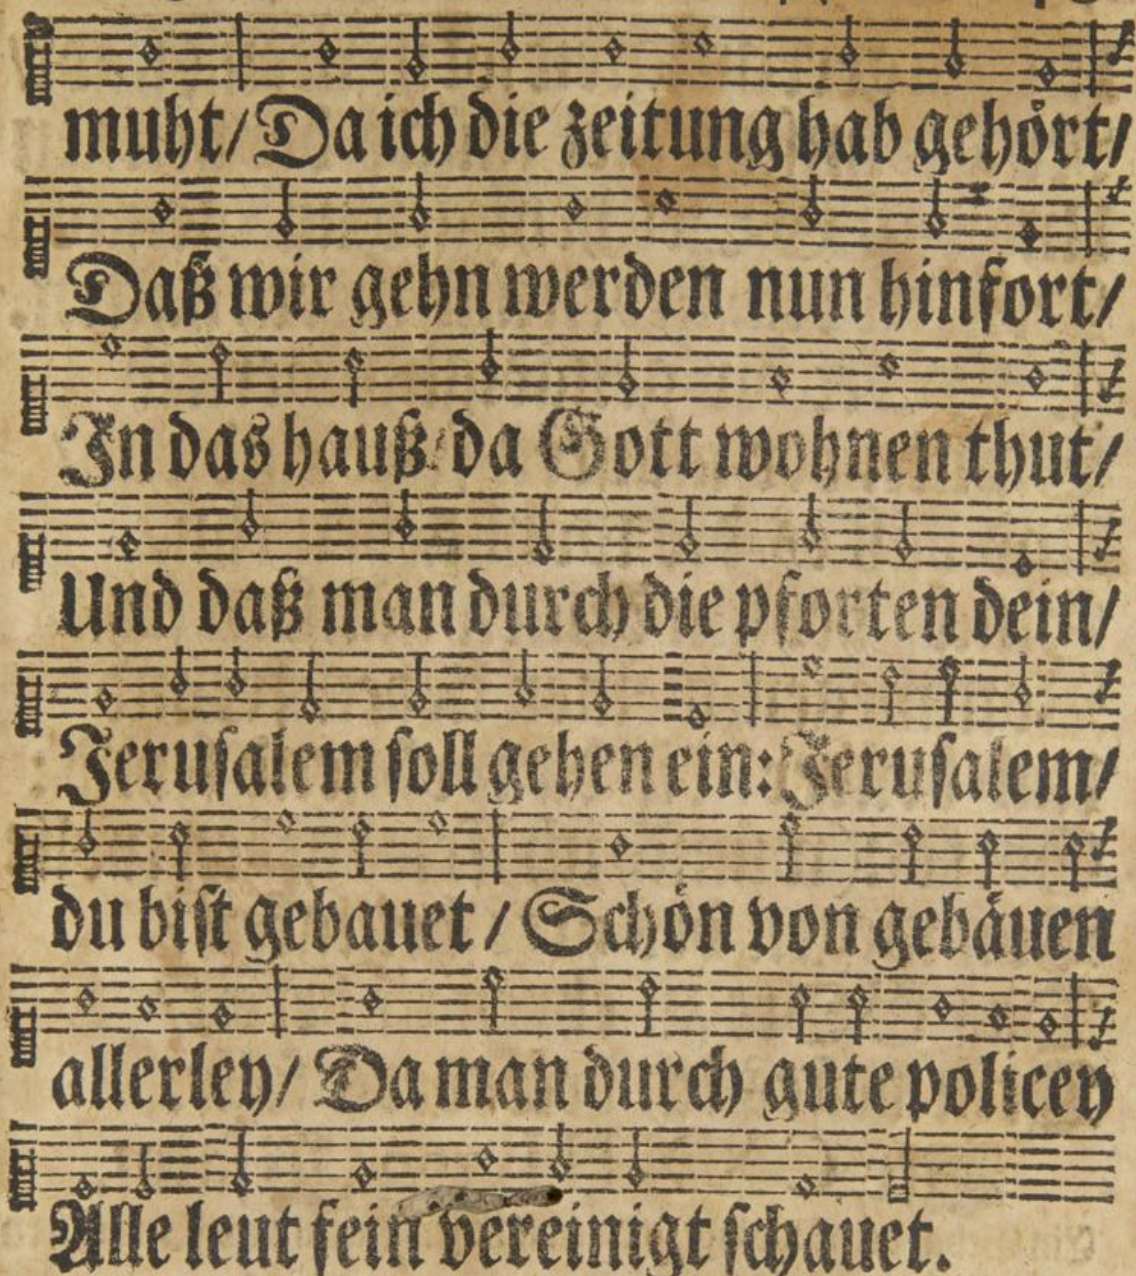 muht/ Da ich die zeitung hab gehört/
Daß wir gehn werden nun hinfort/
In das hauß/ da Gott wohnen thut/
Und daß man durch die pforten dein/
Jerusalem soll gehen ein: Jerusalem/
du bist gebauet / Schön von gebäuen
allerley/ Da man durch gute policey
Alle leut fein vereinigt schauet.